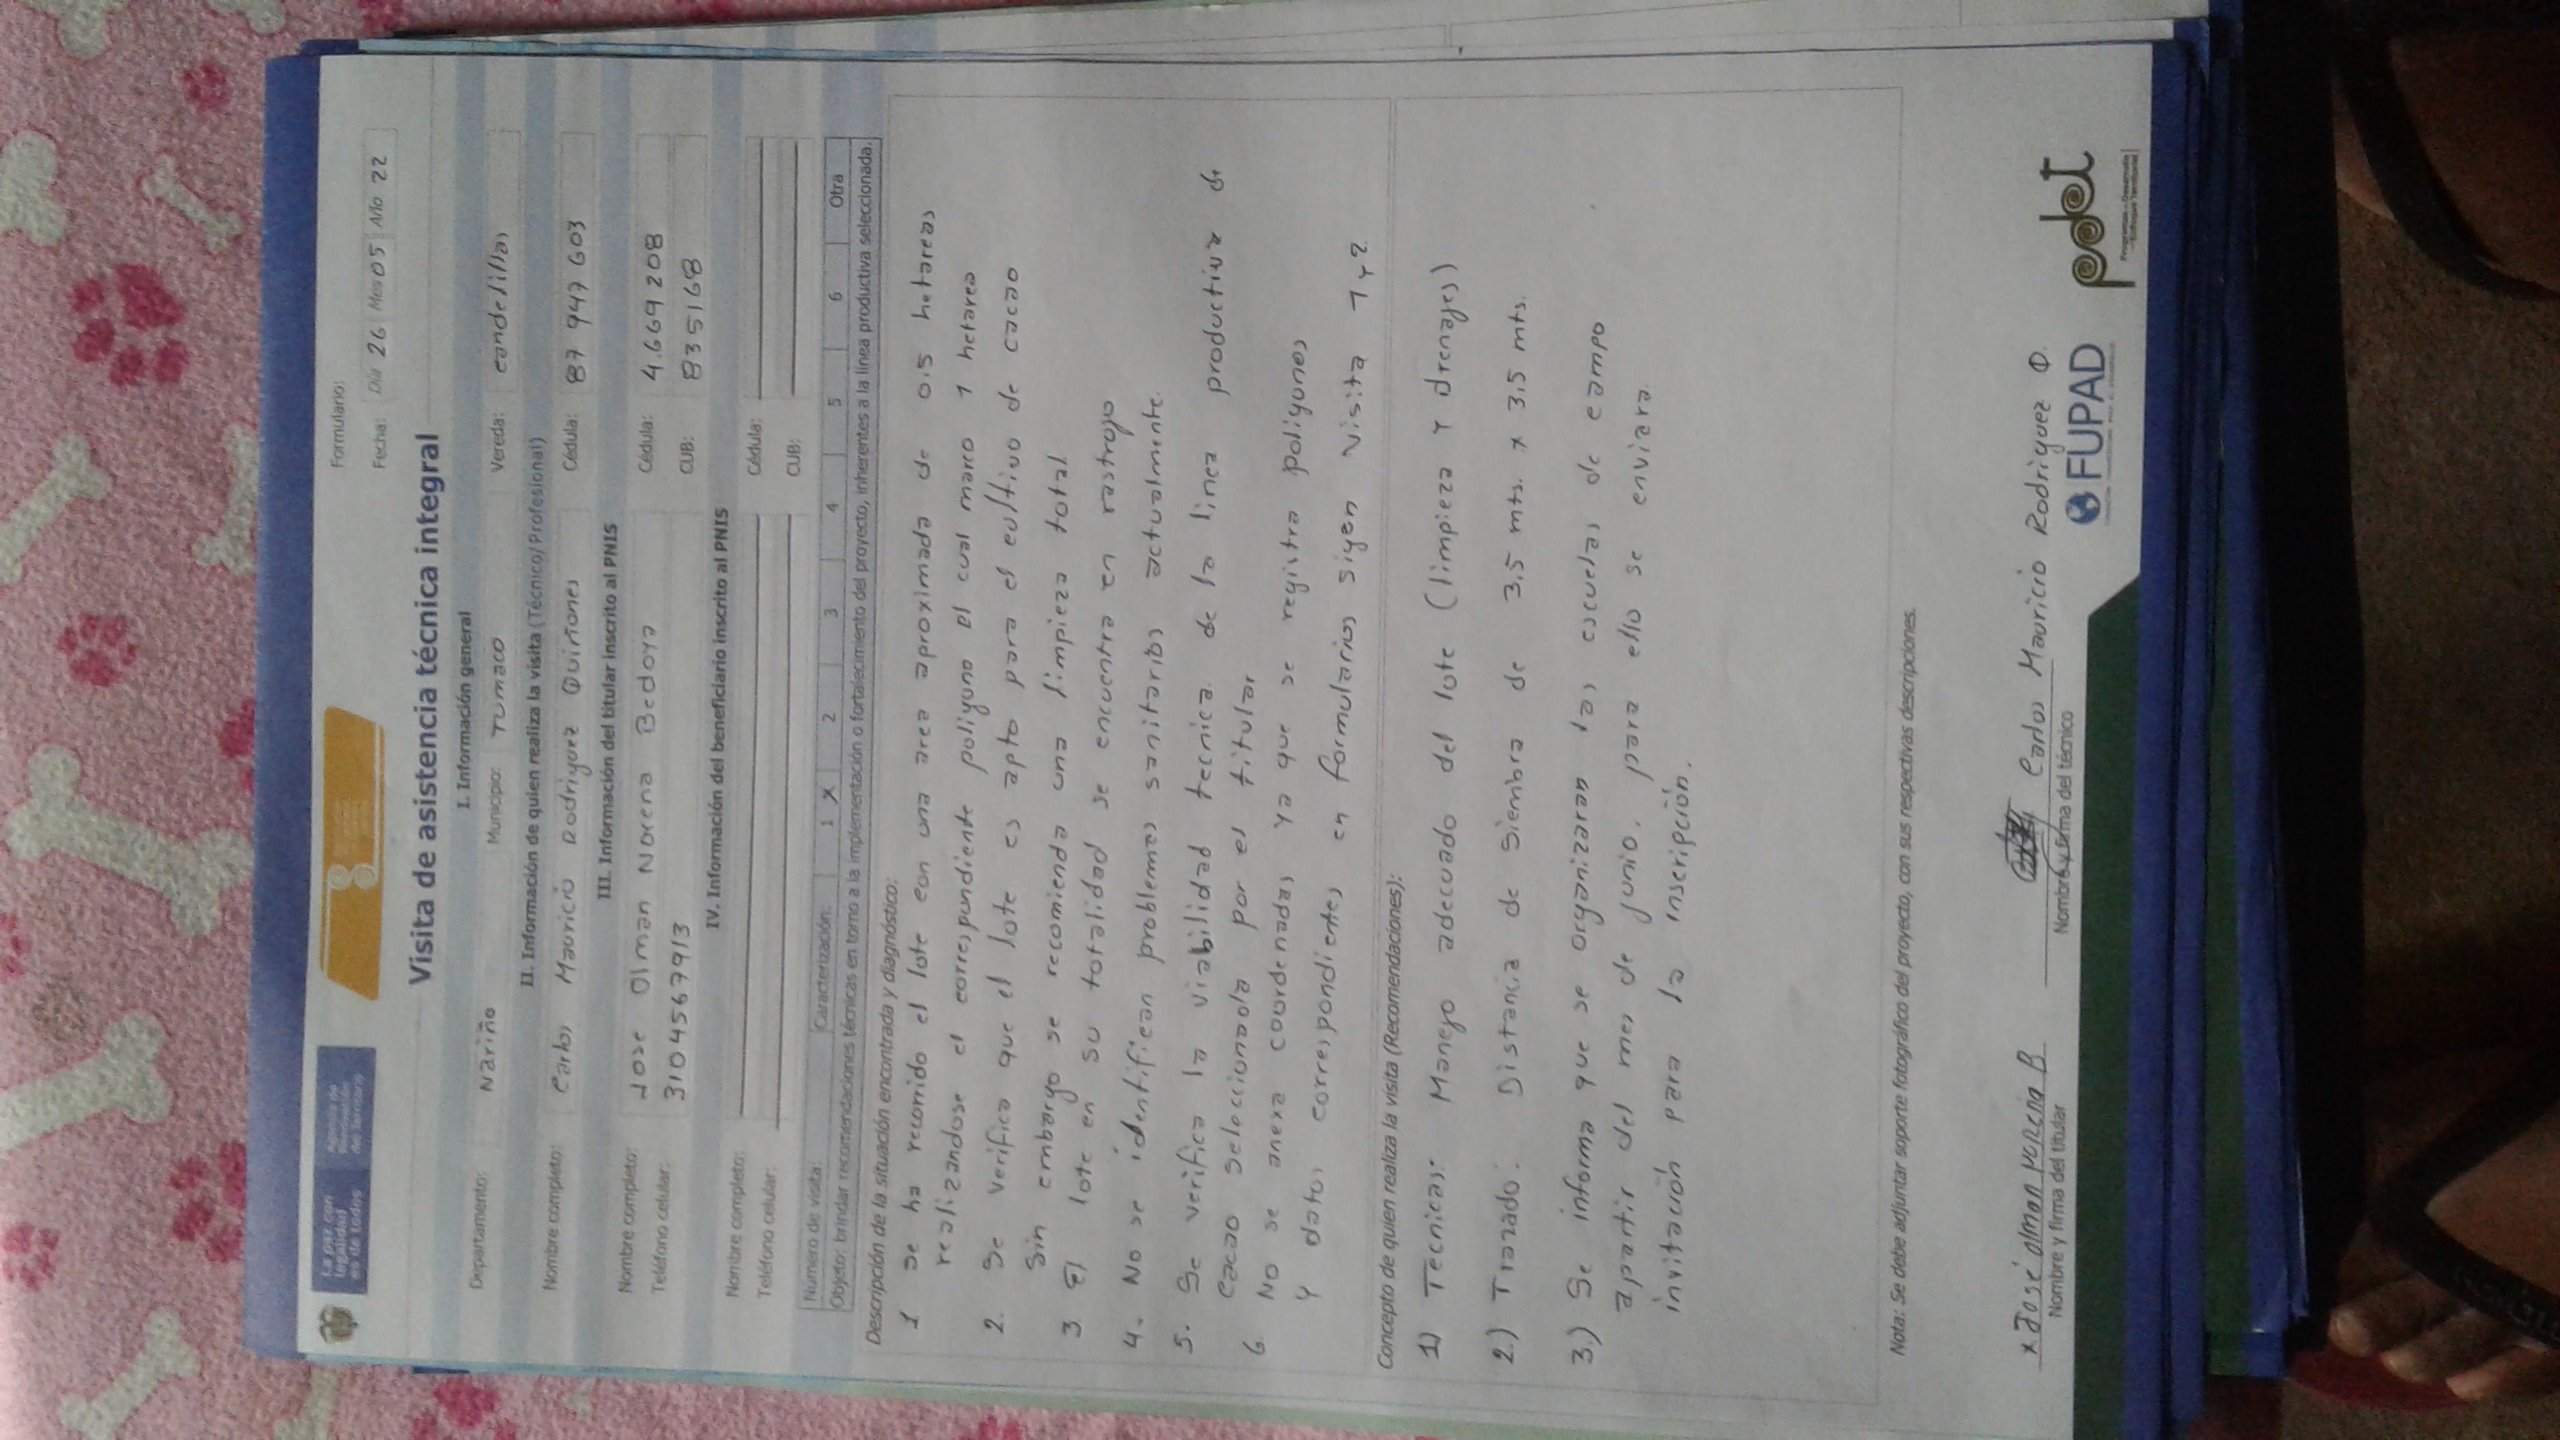 La paz con
legalidad
es de todos
Agencia de
Renovación
del Territorio
Formulario:
Fecha: Día 26 Mes 05 Año 22
Visita de asistencia técnica integral
I. Información general
Departamento: Nariño Municipio: Tumaco Vereda: candelillas
II. Información de quien realiza la visita (Técnico/Profesional)
Nombre completo: Carlos Mauricio Rodriguez Quiñones Cédula: 87 947 603
III. Información del titular inscrito al PNIS
Nombre completo: Jose Olman Norena Bedoya Cédula: 4.669 208
Teléfono celular: 3104567913 CUB: 835168
IV. Información del beneficiario inscrito al PNIS
Nombre completo: Cédula:
Teléfono celular: CUB:
Número de visita: Caracterización: 1 X 2 3 4 5 6 Otra
Objeto: brindar recomendaciones técnicas en torno a la implementación o fortalecimiento del proyecto, inherentes a la línea productiva seleccionada.
Descripción de la situación encontrada y diagnóstico:
1 Se ha recorrido el lote con una area aproximada de 0.5 hetareas
realizandose el correspondiente poligono El cual marco 1 hetarea
2. Se verifica que el lote es apto para el cultivo de cacao
Sin embargo se recomienda una limpieza total
3 El lote en su totalidad se encuentra en rastrojo
4. No se identifican problemas sanitarios actualmente.
5. Se verifica la viabilidad tecnica de la linea productiva de
Cacao Seleccionada por el titular
6. No se anexa coordenadas ya que se registra poligonos
Y datos correspondientes en formularios sigen visita 1 y 2.
Concepto de quien realiza la visita (Recomendaciones):
1) Tecnicas: Manejo adecuado del lote (limpieza Y drenajes)
2.) Trazado: Distancia de Siembra de 3,5 mts. x 3,5 mts.
3.) Se informa que se organizaran las escuelas de campo
apartir del mes de junio, para ello se enviara
invitación para la inscripción.
Nota: Se debe adjuntar soporte fotográfico del proyecto, con sus respectivas descripciones.
x José olman noreña B Carlos Mauricio Rodriguez Q.
Nombre y firma del titular Nombre y firma del técnico
FUPAD
pdet